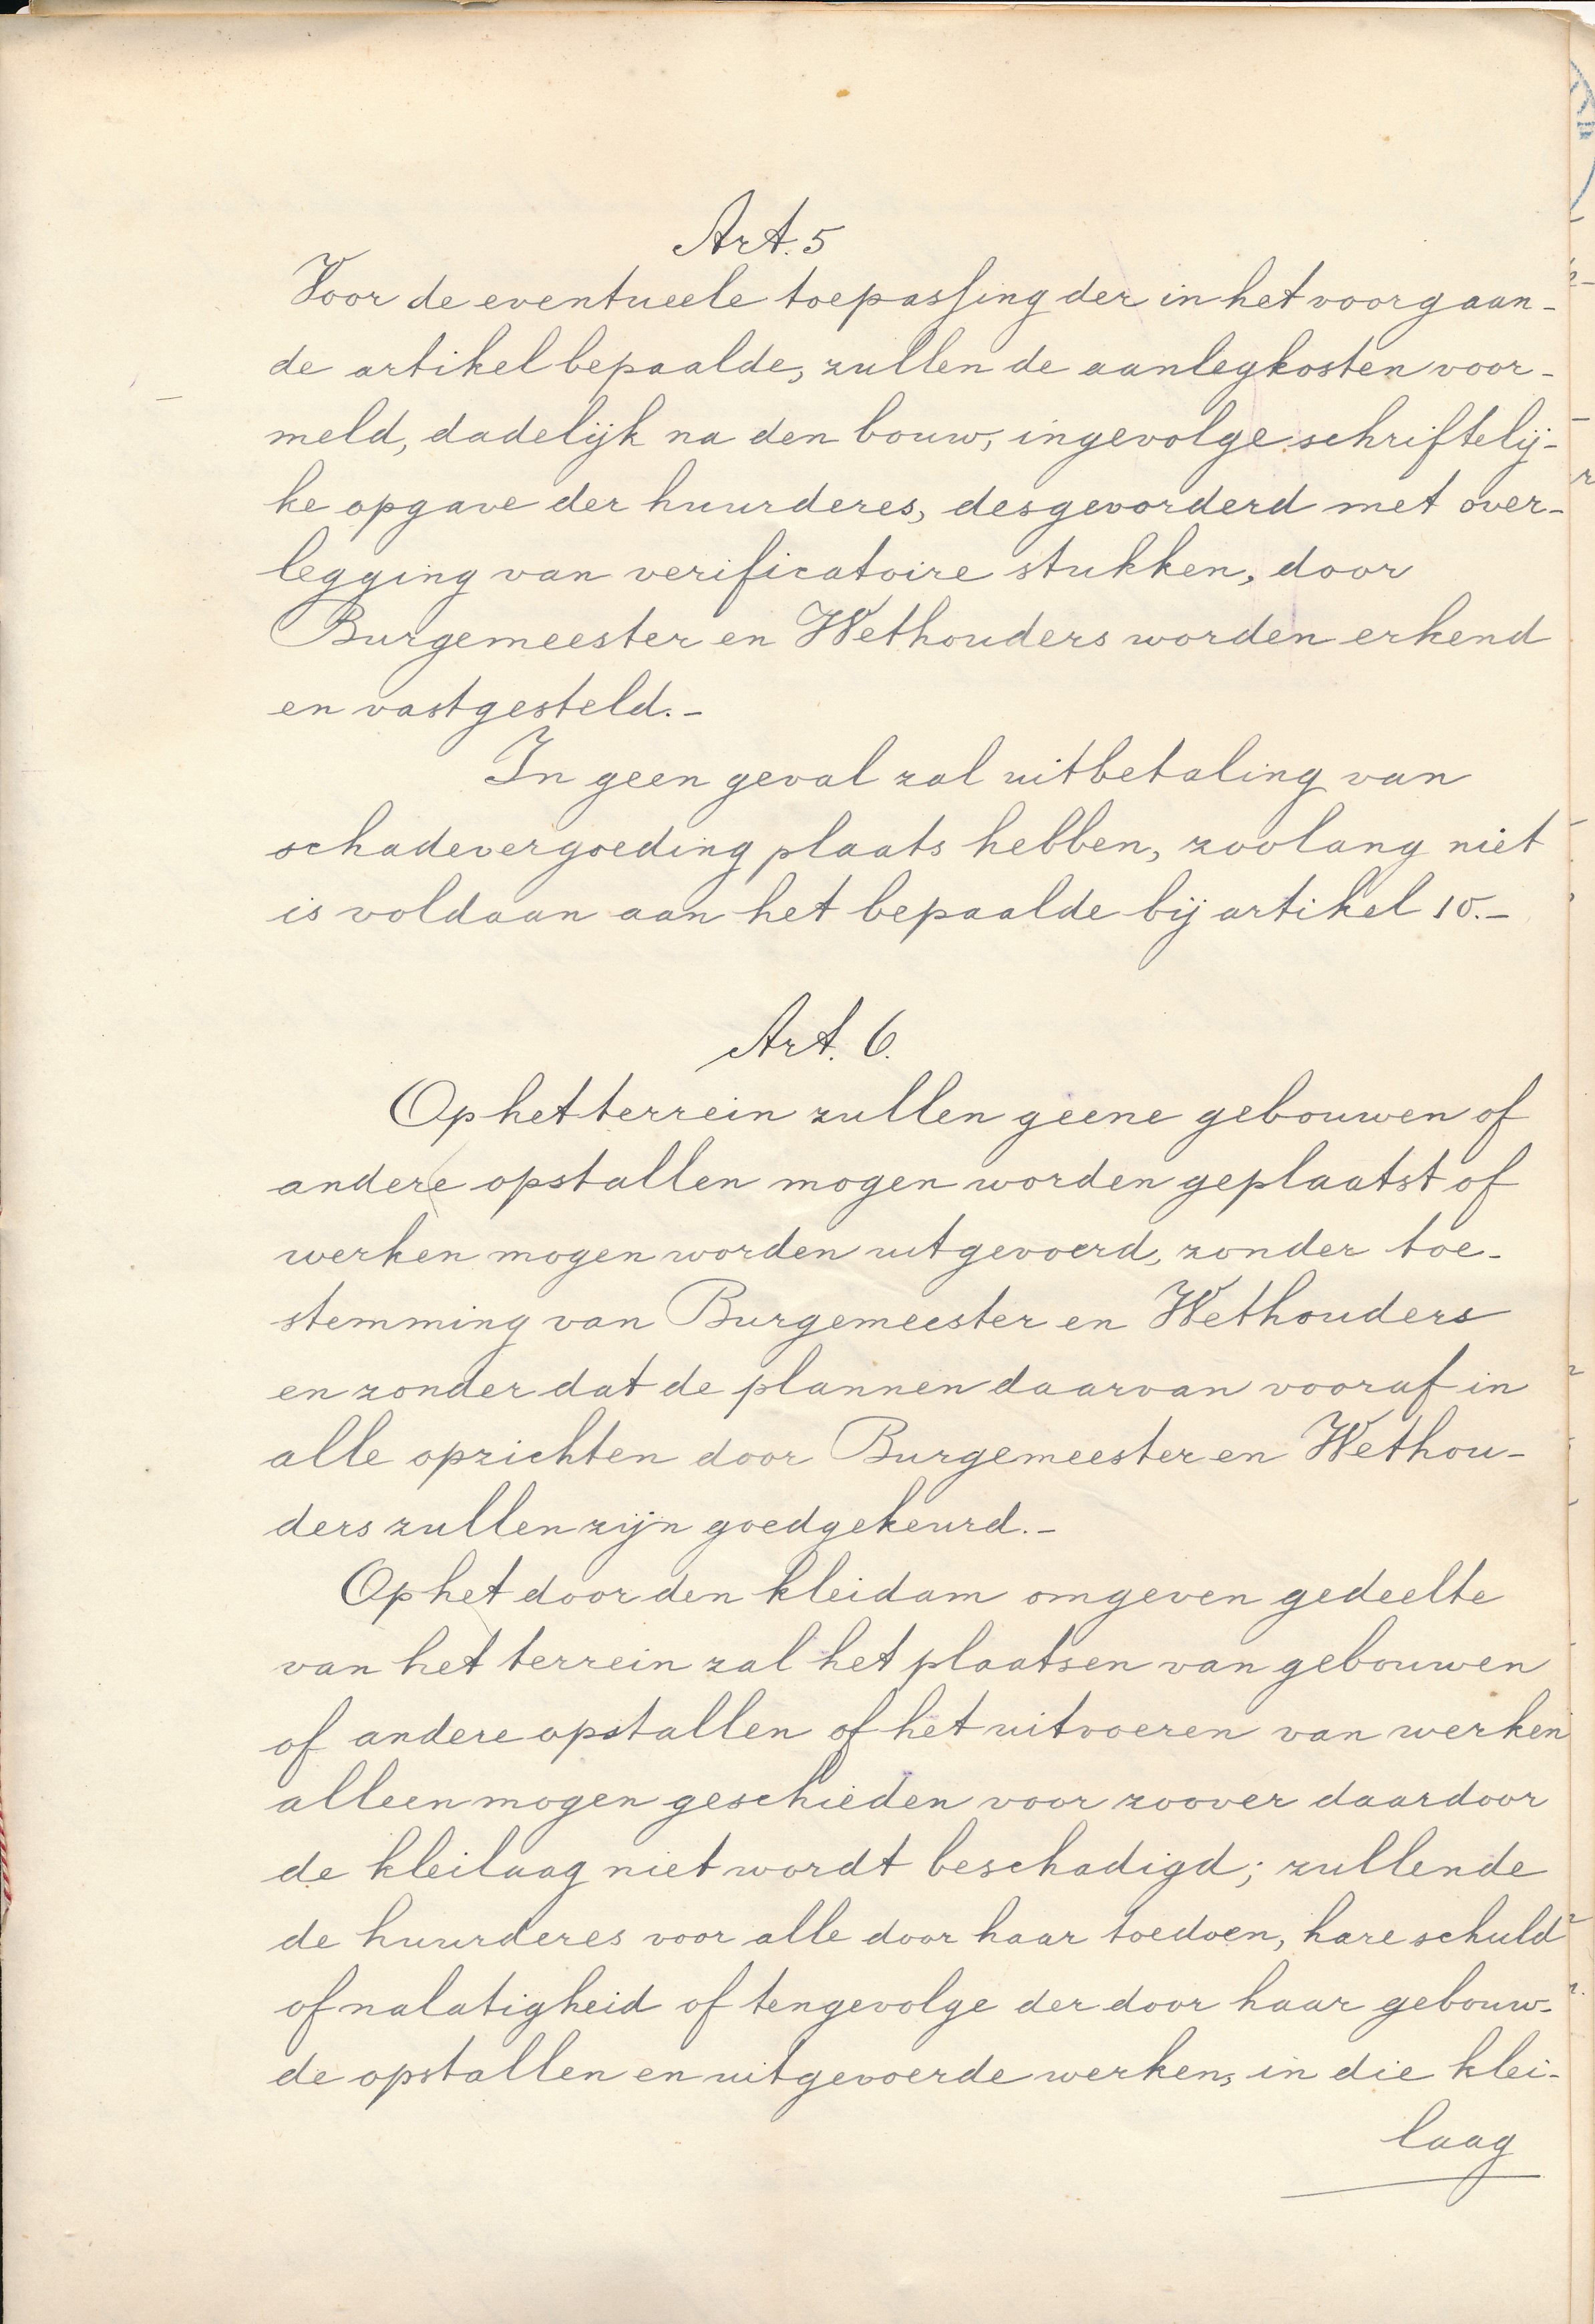 Art. 5
Voor de eventueele toepassing der in het voorgaan-
de artikel bepaalde, zullen de aanlegkosten voor-
meld, dadelijk na den bouw, ingevolge schriftelij-
ke opgave der huurderes, desgevorderd met over-
legging van verificatoire stukken, door
Burgemeester en Wethouders worden erkend
en vastgesteld.-
In geen geval zal uitbetaling van
schadevergoeding plaats hebben, zoolang niet
is voldaan aan het bepaalde bij artikel 10.-
Art. 6.
Op het terrein zullen geene gebouwen of
andere opstallen mogen worden geplaatst of
werken mogen worden uitgevoerd, zonder toe-
stemming van Burgemeester en Wethouders
en zonder dat de plannen daarvan vooraf in
alle opzichten door Burgemeester en Wethou-
ders zullen zijn goedgekeurd.-
Op het door den kleidam omgeven gedeelte
van het terrein zal het plaatsen van gebouwen
of andere opstallen of het uitvoeren van werken
alleen mogen geschieden voor zoover daardoor
de kleilaag niet wordt beschadigd; zullende
de huurderes voor alle door haar toedoen, hare schuld
of nalatigheid of tengevolge der door haar gebouw-
de opstallen en uitgevoerde werken, in die klei-
laag